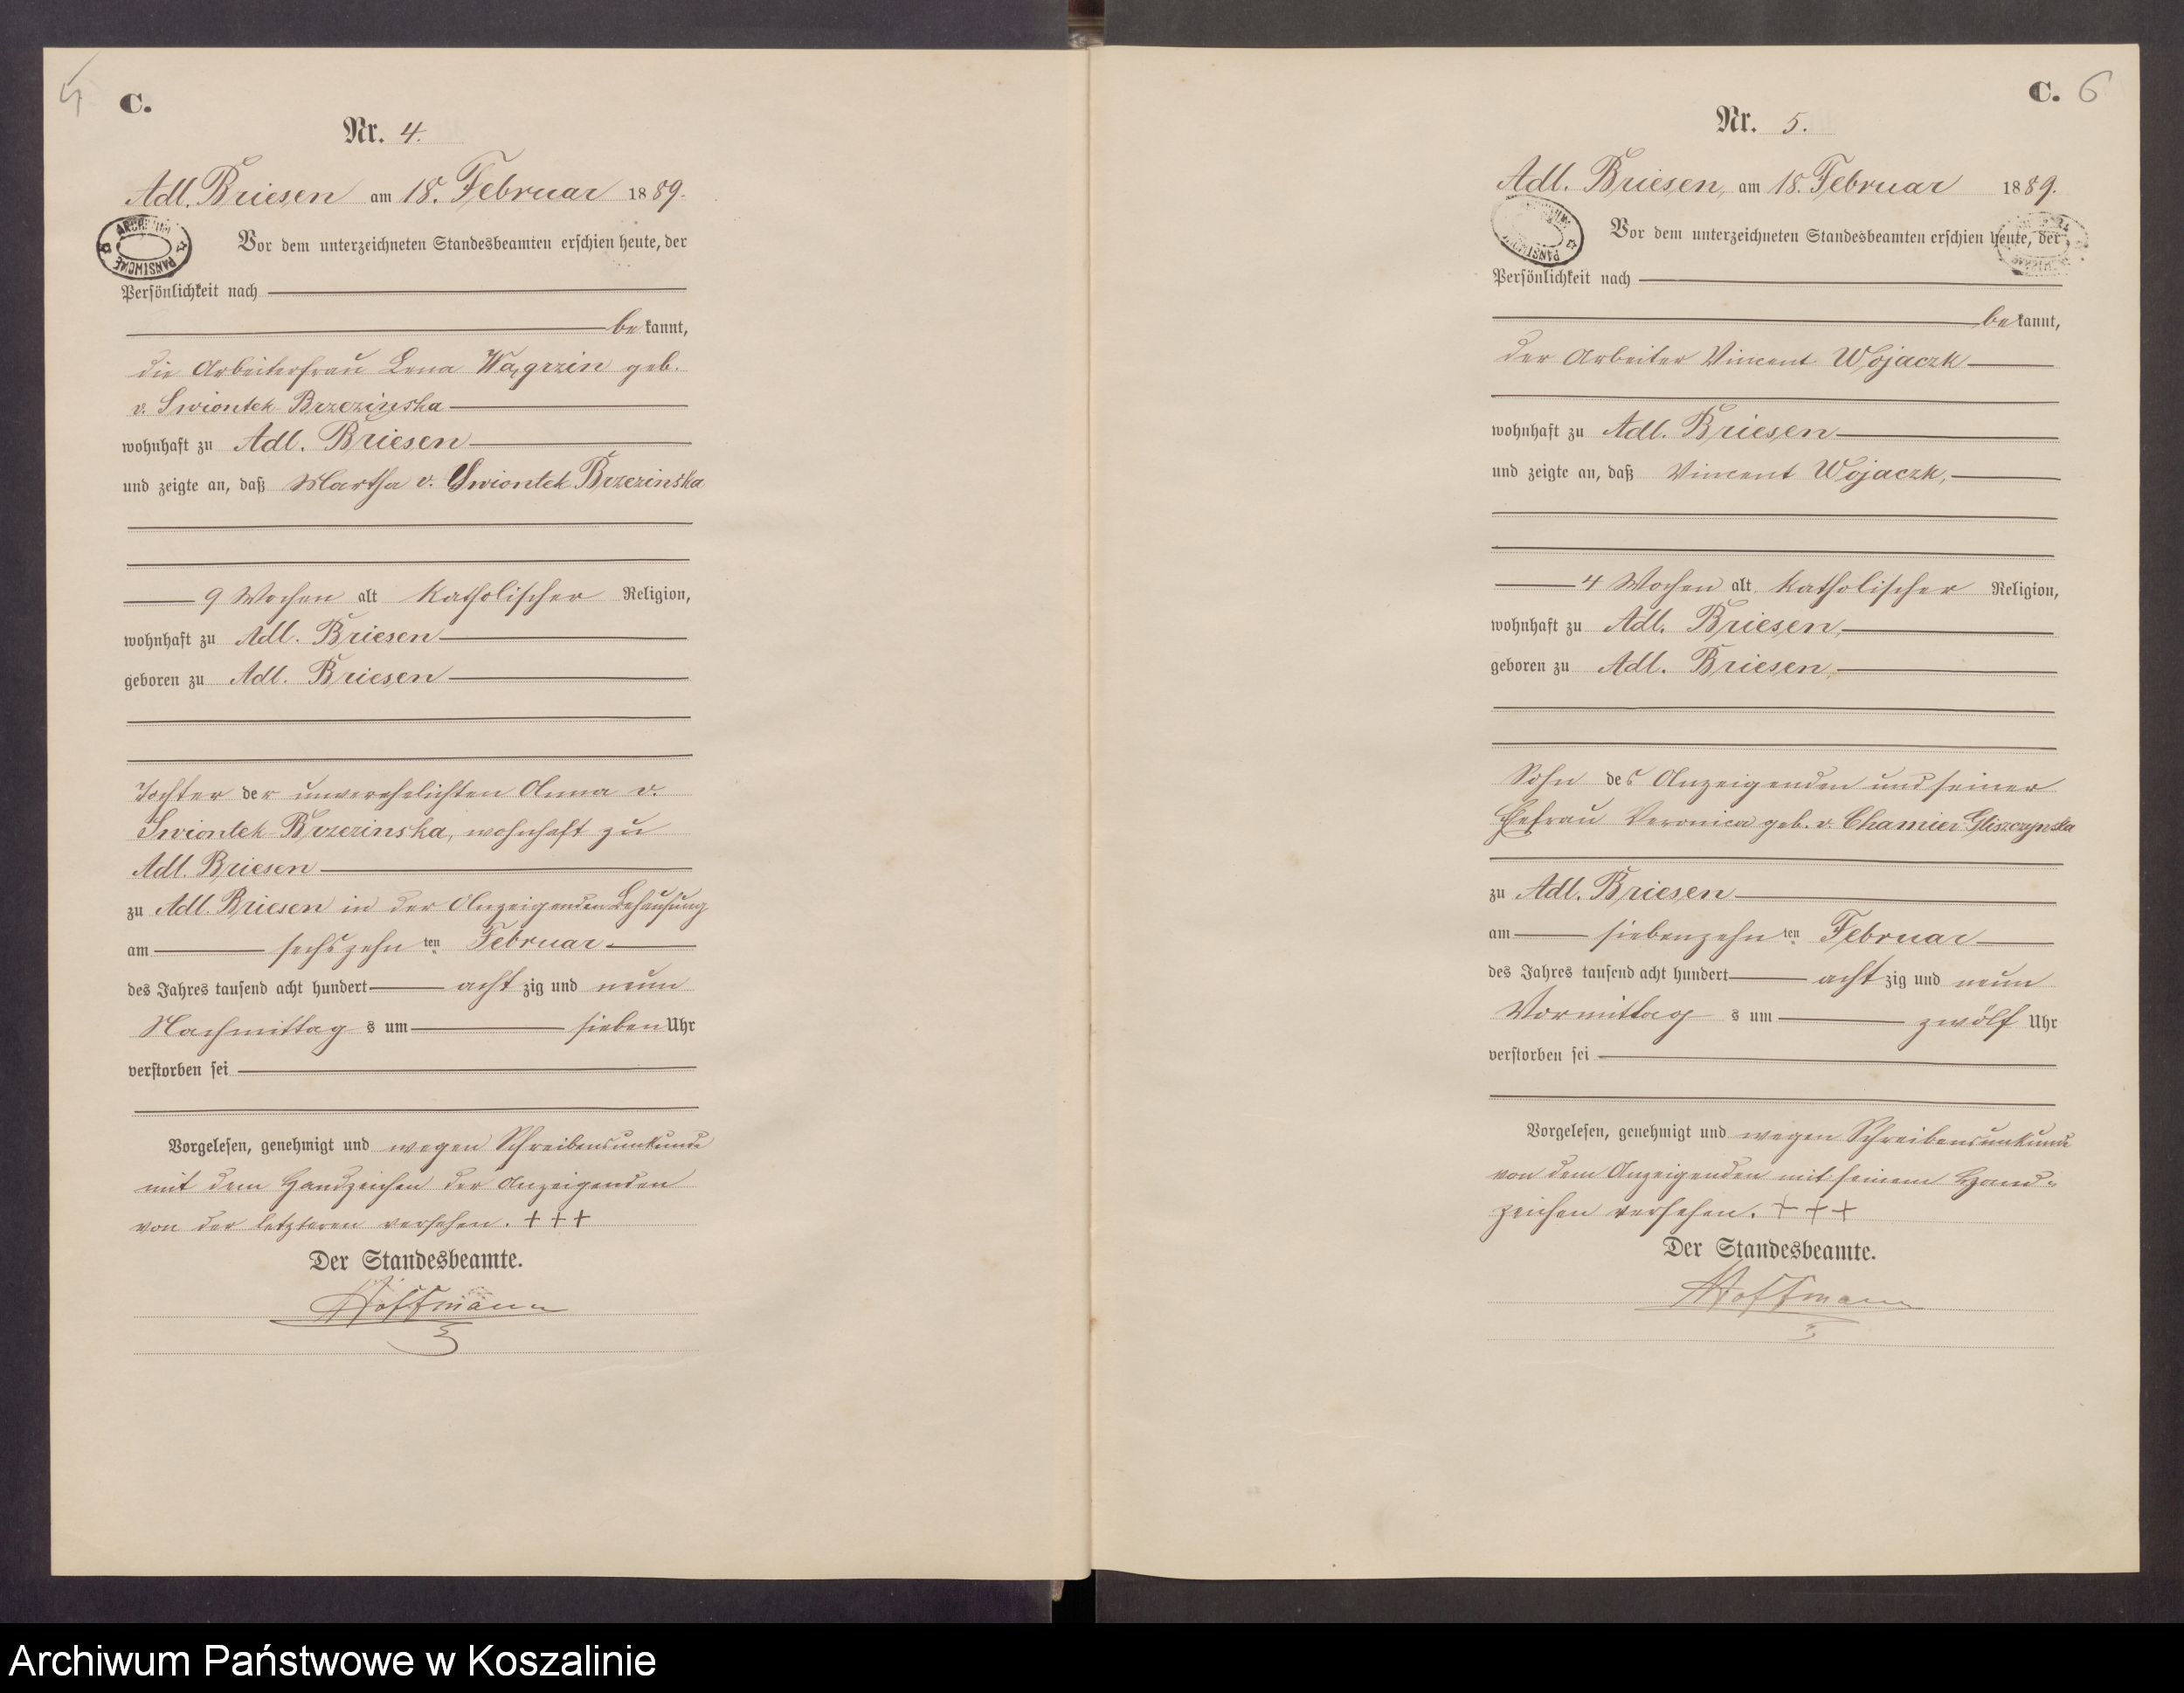 C.
Nr. 4.
Adl. Briesen am 18. Februar 1889.
Vor dem unterzeichneten Standesbeamten erschien heute, der
Persönlichkeit nach
bekannt,
die Arbeiterfrau Lena geb.
v. Swiontek Brzezinska
wohnhaft zu Adl. Briesen
und zeigte an, daß Martha v. Swiontek Brzezinska
9 Wochen alt katholischer Religion,
wohnhaft zu Adl. Briesen
geboren zu Adl. Briesen
Tochter der unverehelichten Anna v.
Swiontek Brzezinska, wohnhaft zu
Adl. Briesen
zu Adl. Briesen in der Anzeigenden Behausung
am sechszehn ten Februar
des Jahres tausend acht hundert achtzig und neun
Nachmittags um sieben Uhr
verstorben sei
Vorgelesen, genehmigt und wegen Schreibensunkunde
mit dem Handzeichen der Anzeigenden
von der letzteren versehen. +++
Der Standesbeamte.
Hoffmann
C. 6
Nr. 5.
Adl. Briesen, am 18. Februar 1889.
Vor dem unterzeichneten Standesbeamten erschien heute, der
Persönlichkeit nach
bekannt,
der Arbeiter Vincent Wojaczk
wohnhaft zu Adl. Briesen
und zeigte an, daß Vincent Wojaczk,
4 Wochen alt katholischer Religion,
wohnhaft zu Adl. Briesen,
geboren zu Adl. Briesen,
Sohn des Anzeigenden und seiner
Ehefrau Veronica geb. v. Chamier Gliszczynska
zu Adl. Briesen
am siebenzehn ten Februar
des Jahres tausend acht hundert achtzig und neun
Vormittags um zwölf Uhr
verstorben sei
Vorgelesen, genehmigt und wegen Schreibensunkunde
von dem Anzeigenden mit seinem Hand=
zeichen versehen. +++
Der Standesbeamte.
Hoffmann
Archiwum Państwowe w Koszalinie